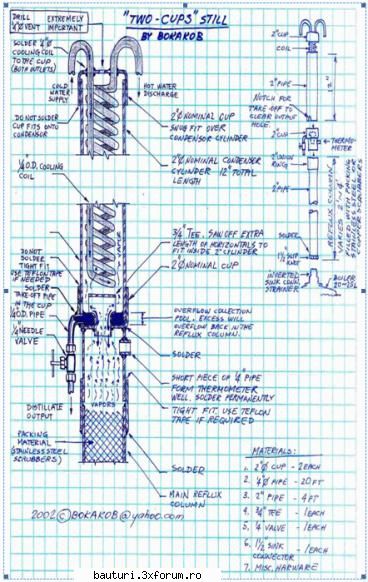 "TWO-CUPS" STILL
BY BOKAKOB
DRILL
EXTREMELY
1/4"Ø VENT
IMPORTANT
SOLDER 1/4"Ø
COOLING COIL
TO THE CUP
(BOTH OUTLETS)
COLD
WATER
SUPPLY
HOT WATER
DISCHARGE
DO NOT SOLDER
CUP FITS ONTO
CONDENSOR
2"Ø NOMINAL CUP
SNUG FIT OVER
CONDENSOR CYLINDER
2"Ø NOMINAL CONDENSER
CYLINDER 12" TOTAL
LENGTH
1/4 O.D. COOLING
COIL
3/4" TEE. SAW OFF EXTRA
LENGTH OF HORIZONTALS TO
FIT INSIDE 2" CYLINDER
2"Ø NOMINAL CUP
VAPOR
DO NOT
SOLDER
TIGHT FIT
USE TEFLON TAPE
IF NEEDED
SOLDER
TAKE-OFF PIPE
IN THE CUP
1/4 O.D. PIPE
1/4 NEEDLE
VALVE
OVERFLOW COLLECTION
POOL. EXCESS WILL
OVERFLOW BACK IN THE
REFLUX COLUMN.
SOLDER
SHORT PIECE OF 1/4" PIPE
FORM THERMOMETER
WELL. SOLDER PERMANENTLY
TIGHT FIT. USE TEFLON
TAPE IF REQUIRED
VAPORS
DISTILLATE
OUTPUT
PACKING
MATERIAL
(STAINLESS STEEL
SCRUBBERS)
SOLDER
MAIN REFLUX
COLUMN
2002 © BOKAKOB@yahoo.com
2" CUP
COIL
2" PIPE
12"
NOTCH FOR
TAKE OFF TO
CLEAR OUTPUT
HOLE
2" CUP
THERMO-
METER
2" UNION
RING
2" PIPE
REFLUX COLUMN
VARIES 2'-4'
FILLED WITH PACKING
STAINLESS STEEL OR
COPPER SCRUBBERS
SOLDER
1 1/2 SLIP
KNUT
INVERTED
SINK CONN.
STRAINER
BOILER
20-25L
MATERIALS:
1. 2"Ø CUP - 2 EACH
2. 1/4"Ø PIPE - 20 FT
3. 2" PIPE - 4 FT
4. 3/4" TEE - 1 EACH
5. 1/4 VALVE - 1 EACH
6. 1 1/2" SINK - 1 EACH
CONNECTOR
7. MISC. HARWARE
bauturi.3xforum.ro